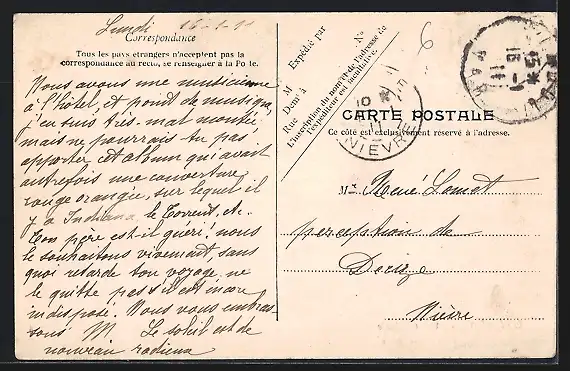 Lundi 16-1-11
Correspondance
Tous les pays étrangers n'acceptent pas la
correspondance au recto, se renseigner à la Poste.
Nous avons une musicienne
à l'hôtel, et point de musique,
j'en suis très-mal montée,
mais ne pourrais-tu pas
apporter cet album qui avait
autrefois une couverture
rouge orangée, sur lequel il
y a Indiana, le Torrent, etc.
Ton père est-il guéri? nous
le souhaitons vivement, sans
quoi retarde ton voyage ne
le quitte pas s'il est encore
indisposé. Nous vous embras-
sons M. Le soleil est de
nouveau radieux
Expédié par
M
Demt à
Rue No
L'inscription du nom et de l'adresse de
l'expéditeur est facultative.
6
NIEVRE
16 -1
11
CARTE POSTALE
Ce côté est exclusivement réservé à l'adresse.
Mr René Lomet
perception de
Dorize
Nièvre